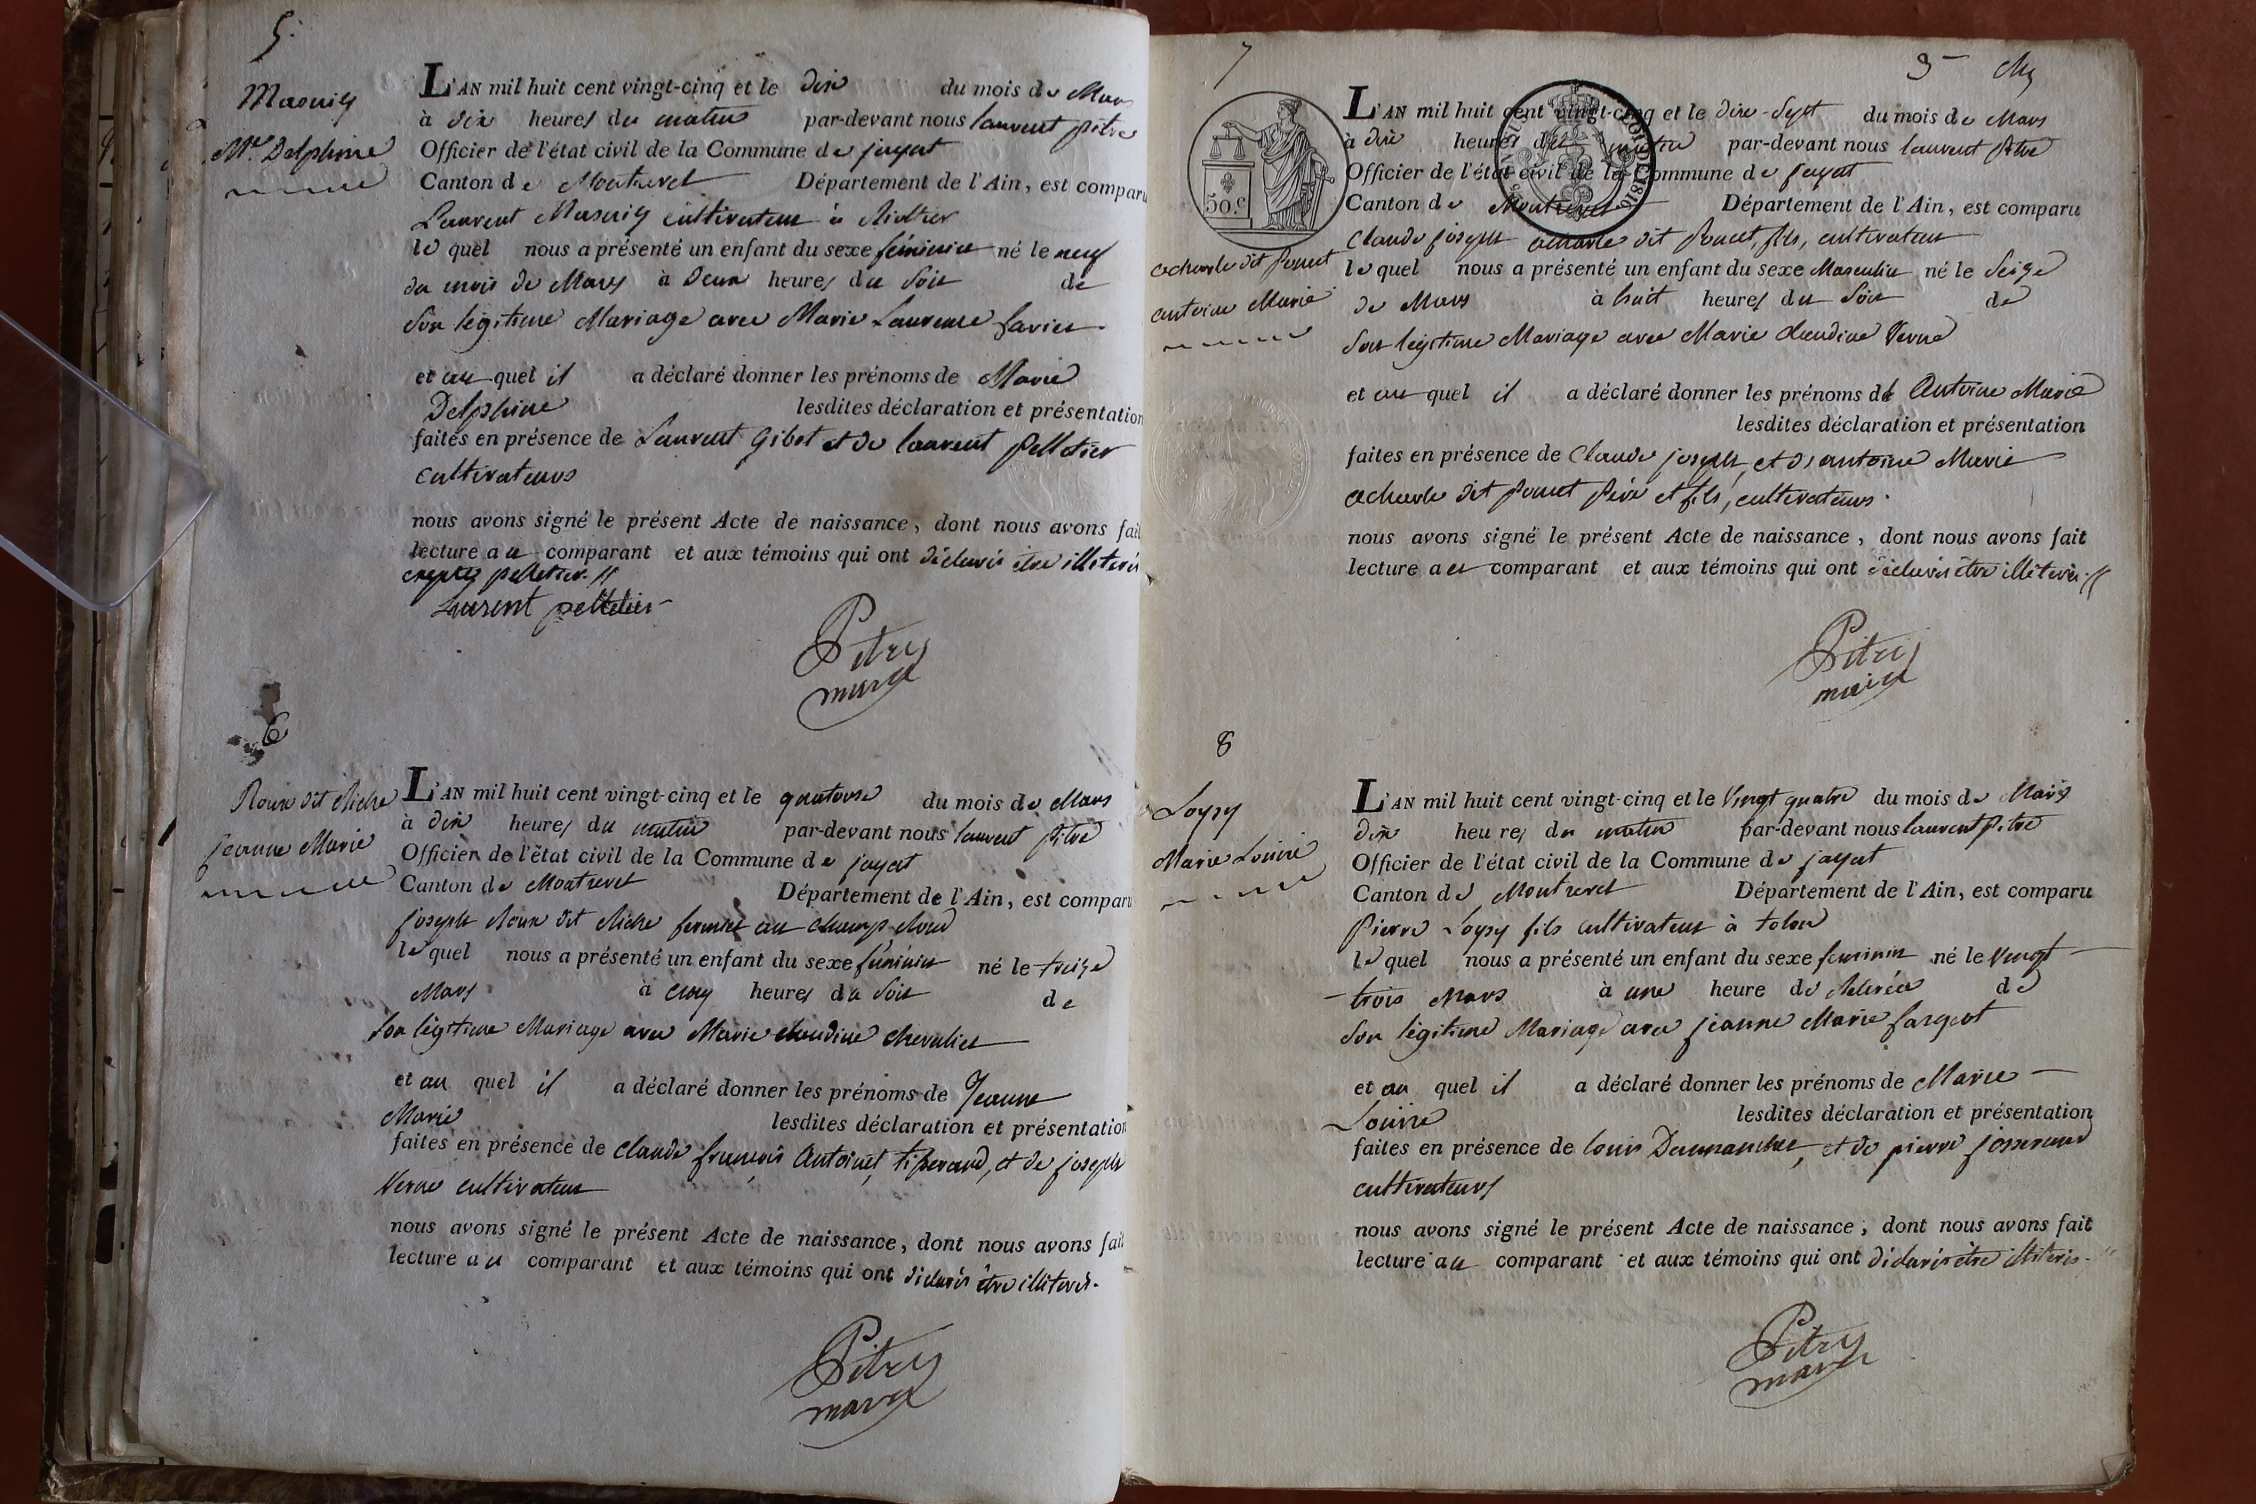 5.
Masuiy
Mie Delphine
L'AN mil huit cent vingt-cinq et le dix du mois de Mars
à dix heures du matin par-devant nous laurent pitre
Officier de l'état civil de la Commune de jayat
Canton de Montrevel Département de l'Ain, est comparu
Laurent Masuiy cultivateur à
le quel nous a présenté un enfant du sexe féminin né le neuf
du mois de Mars à Deux heures du Soir de
Son légitime Mariage avec Marie Laurence favier
et au quel il a déclaré donner les prénoms de Marie
Delphine lesdites déclaration et présentation
faites en présence de Laurent Gibot et de laurent pelletier
cultivateurs
nous avons signé le présent Acte de naissance, dont nous avons fait
lecture au comparant et aux témoins qui ont déclarés être illiterés
excepté pelletier.//
Laurent pelletier
Pitre
maire
6
Roux dit Riche
jeanne Marie
L'AN mil huit cent vingt-cinq et le quatorse du mois de Mars
à dix heures du matin par-devant nous laurent pitre
Officier de l'état civil de la Commune de jayat
Canton de Montrevel Département de l'Ain, est comparu
joseph Roux dit Riche fermier au champ
le quel nous a présenté un enfant du sexe féminin né le treize
Mars à cinq heures du Soir de
Son légitime Mariage avec Marie claudine chevalier
et au quel il a déclaré donner les prénoms de Jeanne
Marie lesdites déclaration et présentation
faites en présence de claude françois Antoinet tiperand, et de joseph
Verne cultivateur
nous avons signé le présent Acte de naissance, dont nous avons fait
lecture au comparant et aux témoins qui ont déclarés être illiterés.
Pitre
maire
7
3
50.c
1816
acharle dit ponet
antoine Marie
L'AN mil huit cent vingt-cinq et le dix-Sept du mois de Mars
à dix heures du matin par-devant nous laurent pitre
Officier de l'état civil de la Commune de jayat
Canton de Montrevel Département de l'Ain, est comparu
Claude joseph acharle dit ponet, fils, cultivateur
le quel nous a présenté un enfant du sexe Masculin né le Seize
de Mars à huit heures du Soir de
Son légitime Mariage avec Marie claudine Verne
et au quel il a déclaré donner les prénoms de Antoine Marie
lesdites déclaration et présentation
faites en présence de Claude joseph, et d'antoine Marie
acharle dit ponet père et fils, cultivateurs.
nous avons signé le présent Acte de naissance, dont nous avons fait
lecture au comparant et aux témoins qui ont déclarés être illiterés.//
Pitre
maire
8
Loysy
Marie Louise
L'AN mil huit cent vingt-cinq et le Vingt quatre du mois de Mars
dix heures du matin par-devant nous laurent pitre
Officier de l'état civil de la Commune de jayat
Canton de Montrevel Département de l'Ain, est comparu
Pierre Loysy fils cultivateur à
le quel nous a présenté un enfant du sexe feminin né le Vingt
trois Mars à une heure de Relevée de
Son légitime Mariage avec jeanne Marie fargeot
et au quel il a déclaré donner les prénoms de Marie
Louise lesdites déclaration et présentation
faites en présence de louis, et de pierre josserand
cultivateurs
nous avons signé le présent Acte de naissance, dont nous avons fait
lecture au comparant et aux témoins qui ont déclarés être illiterés.
Pitre
maire